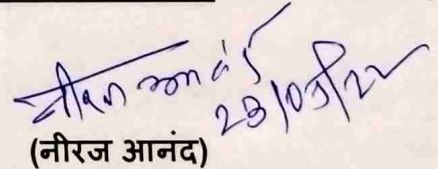 नीरज आनंद
23/03/22
(नीरज आनंद)